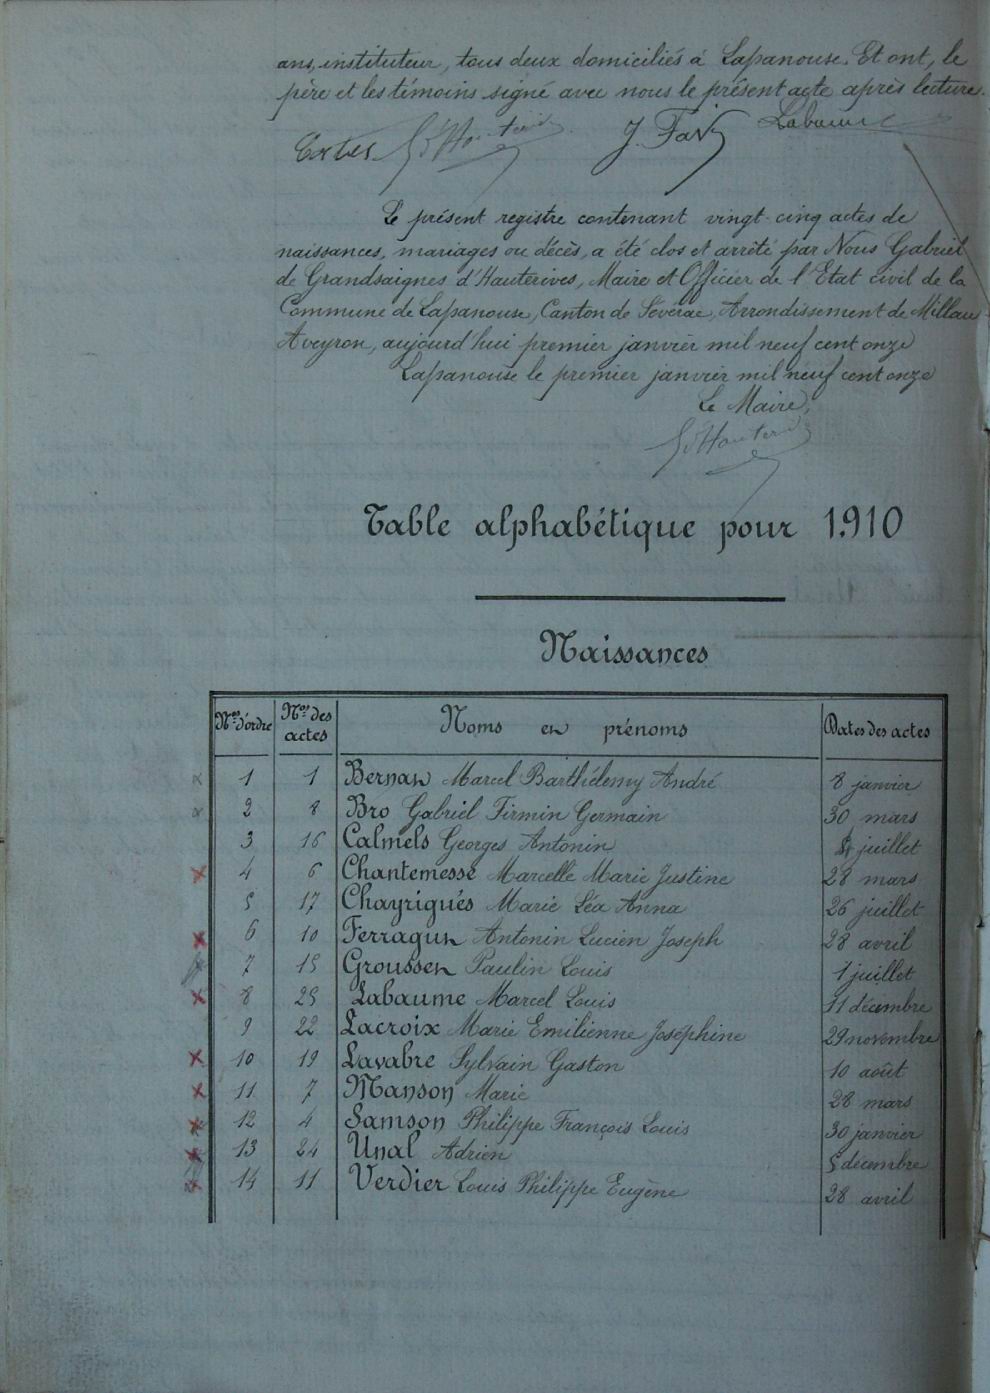 ans, instituteur, tous deux domiciliés à Lapanouse. Et ont, le
père et les témoins signé avec nous le présent acte après lecture.
J. Fav Labaume
Le présent registre contenant vingt-cinq actes de
naissances, mariages ou décès, a été clos et arrêté par Nous Gabriel
de Grandsaignes d'Hauterives, Maire et Officier de l'Etat civil de la
Commune de Lapanouse, Canton de Séverac, Arrondissement de Millau
Aveyron, aujourd'hui premier janvier mil neuf cent onze
Lapanouse le premier janvier mil neuf cent onze
Le Maire,
Table alphabétique pour 1.910
Naissances
Nos d'ordre Nos des actes Noms en prénoms Dates des actes
1 1 Bernan Marcel Barthélemy André 8 janvier
2 8 Bro Gabriel Firmin Germain 30 mars
3 16 Calmels Georges Antonin juillet
4 6 Chantemesse Marcelle Marie Justine 28 mars
5 17 Chayrigués Marie Léa Anna 26 juillet
6 10 Ferragun Antonin Lucien Joseph 28 avril
7 15 Groussen Paulin Louis 1 juillet
8 25 Labaume Marcel Louis 11 décembre
9 22 Lacroix Marie Emilienne Joséphine 29 novembre
10 19 Lavabre Sylvain Gaston 10 août
11 7 Manson Marie 28 mars
12 4 Samson Philippe François Louis 30 janvier
13 24 Unal Adrien 5 décembre
14 11 Verdier Louis Philippe Eugène 28 avril